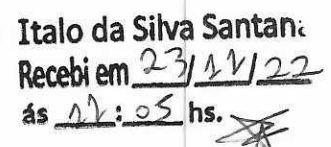 Italo da Silva Santan
Recebi em 23/11/22
ás 11:05 hs.